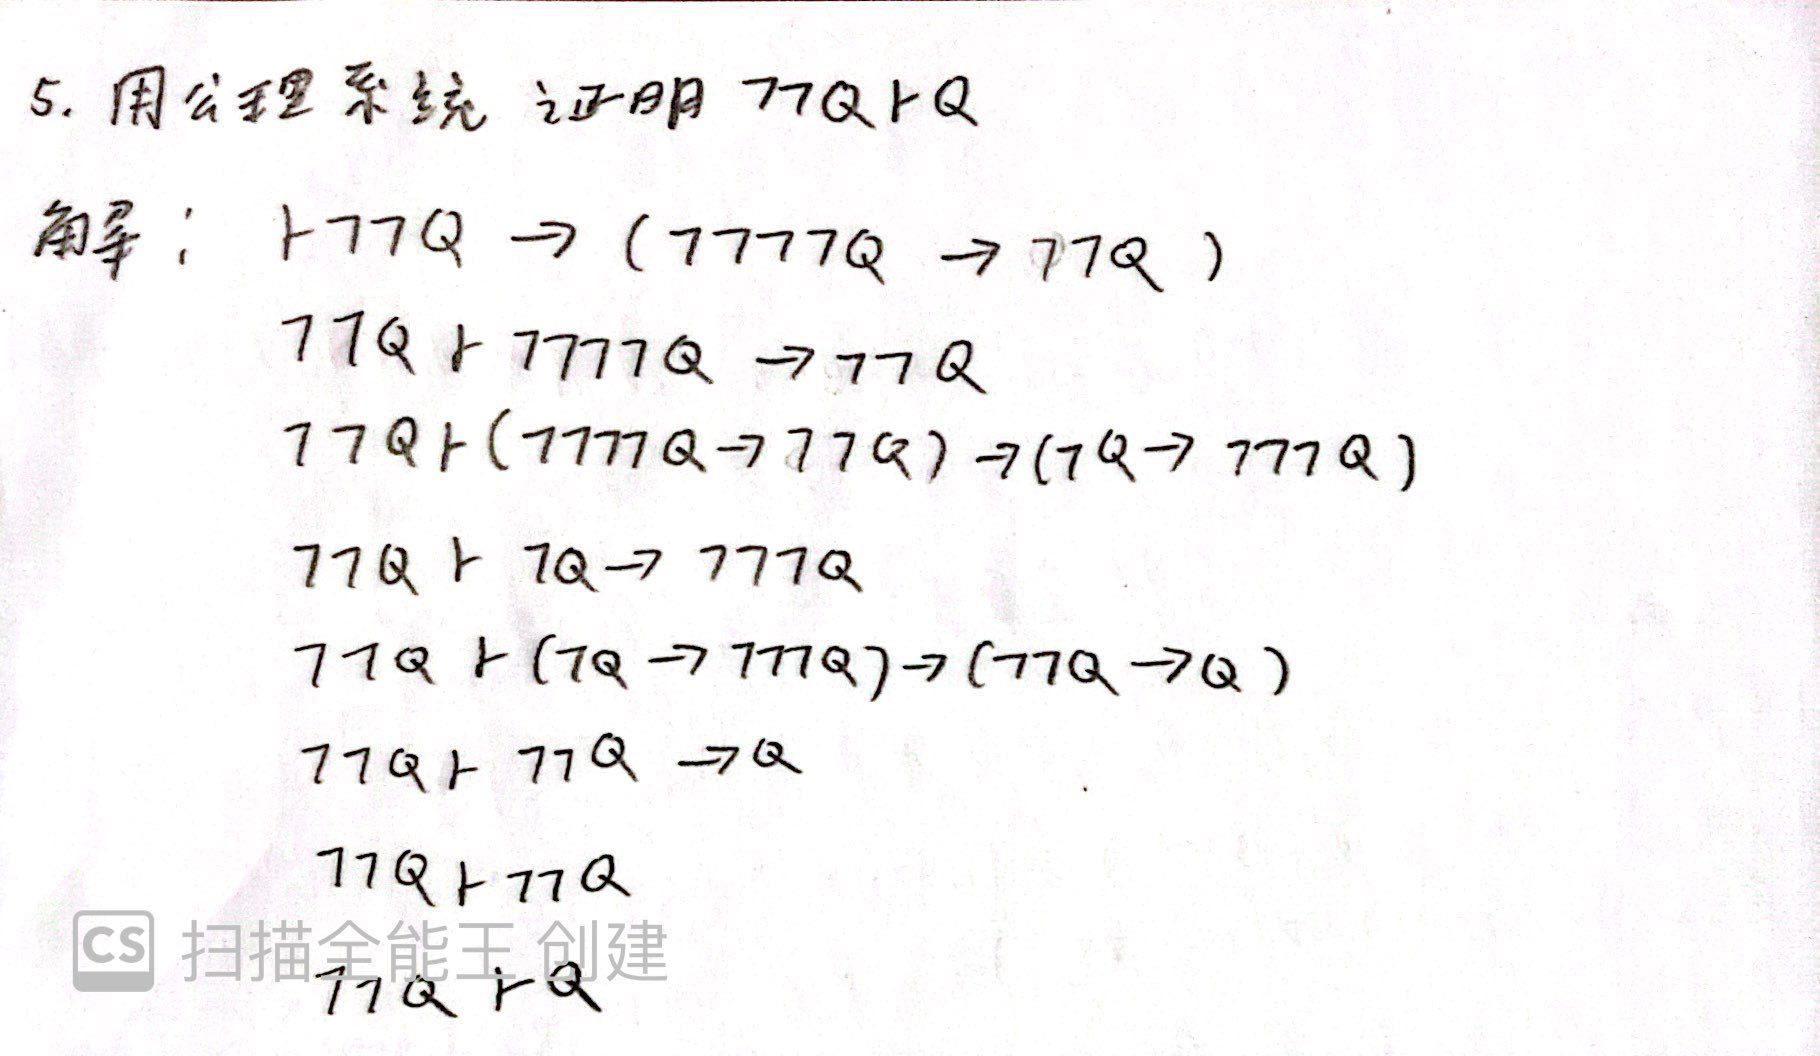 5. 用公理系统 证明 ¬¬Q⊢Q
解: ⊢¬¬Q → (¬¬¬¬Q → ¬¬Q)
¬¬Q ⊢ ¬¬¬¬Q → ¬¬Q
¬¬Q⊢(¬¬¬¬Q→¬¬Q)→(¬Q→¬¬¬Q)
¬¬Q ⊢ ¬Q→¬¬¬Q
¬¬Q ⊢(¬Q→¬¬¬Q)→(¬¬Q→Q)
¬¬Q⊢ ¬¬Q →Q
¬¬Q⊢¬¬Q
CS 扫描全能王 创建
¬¬Q ⊢Q